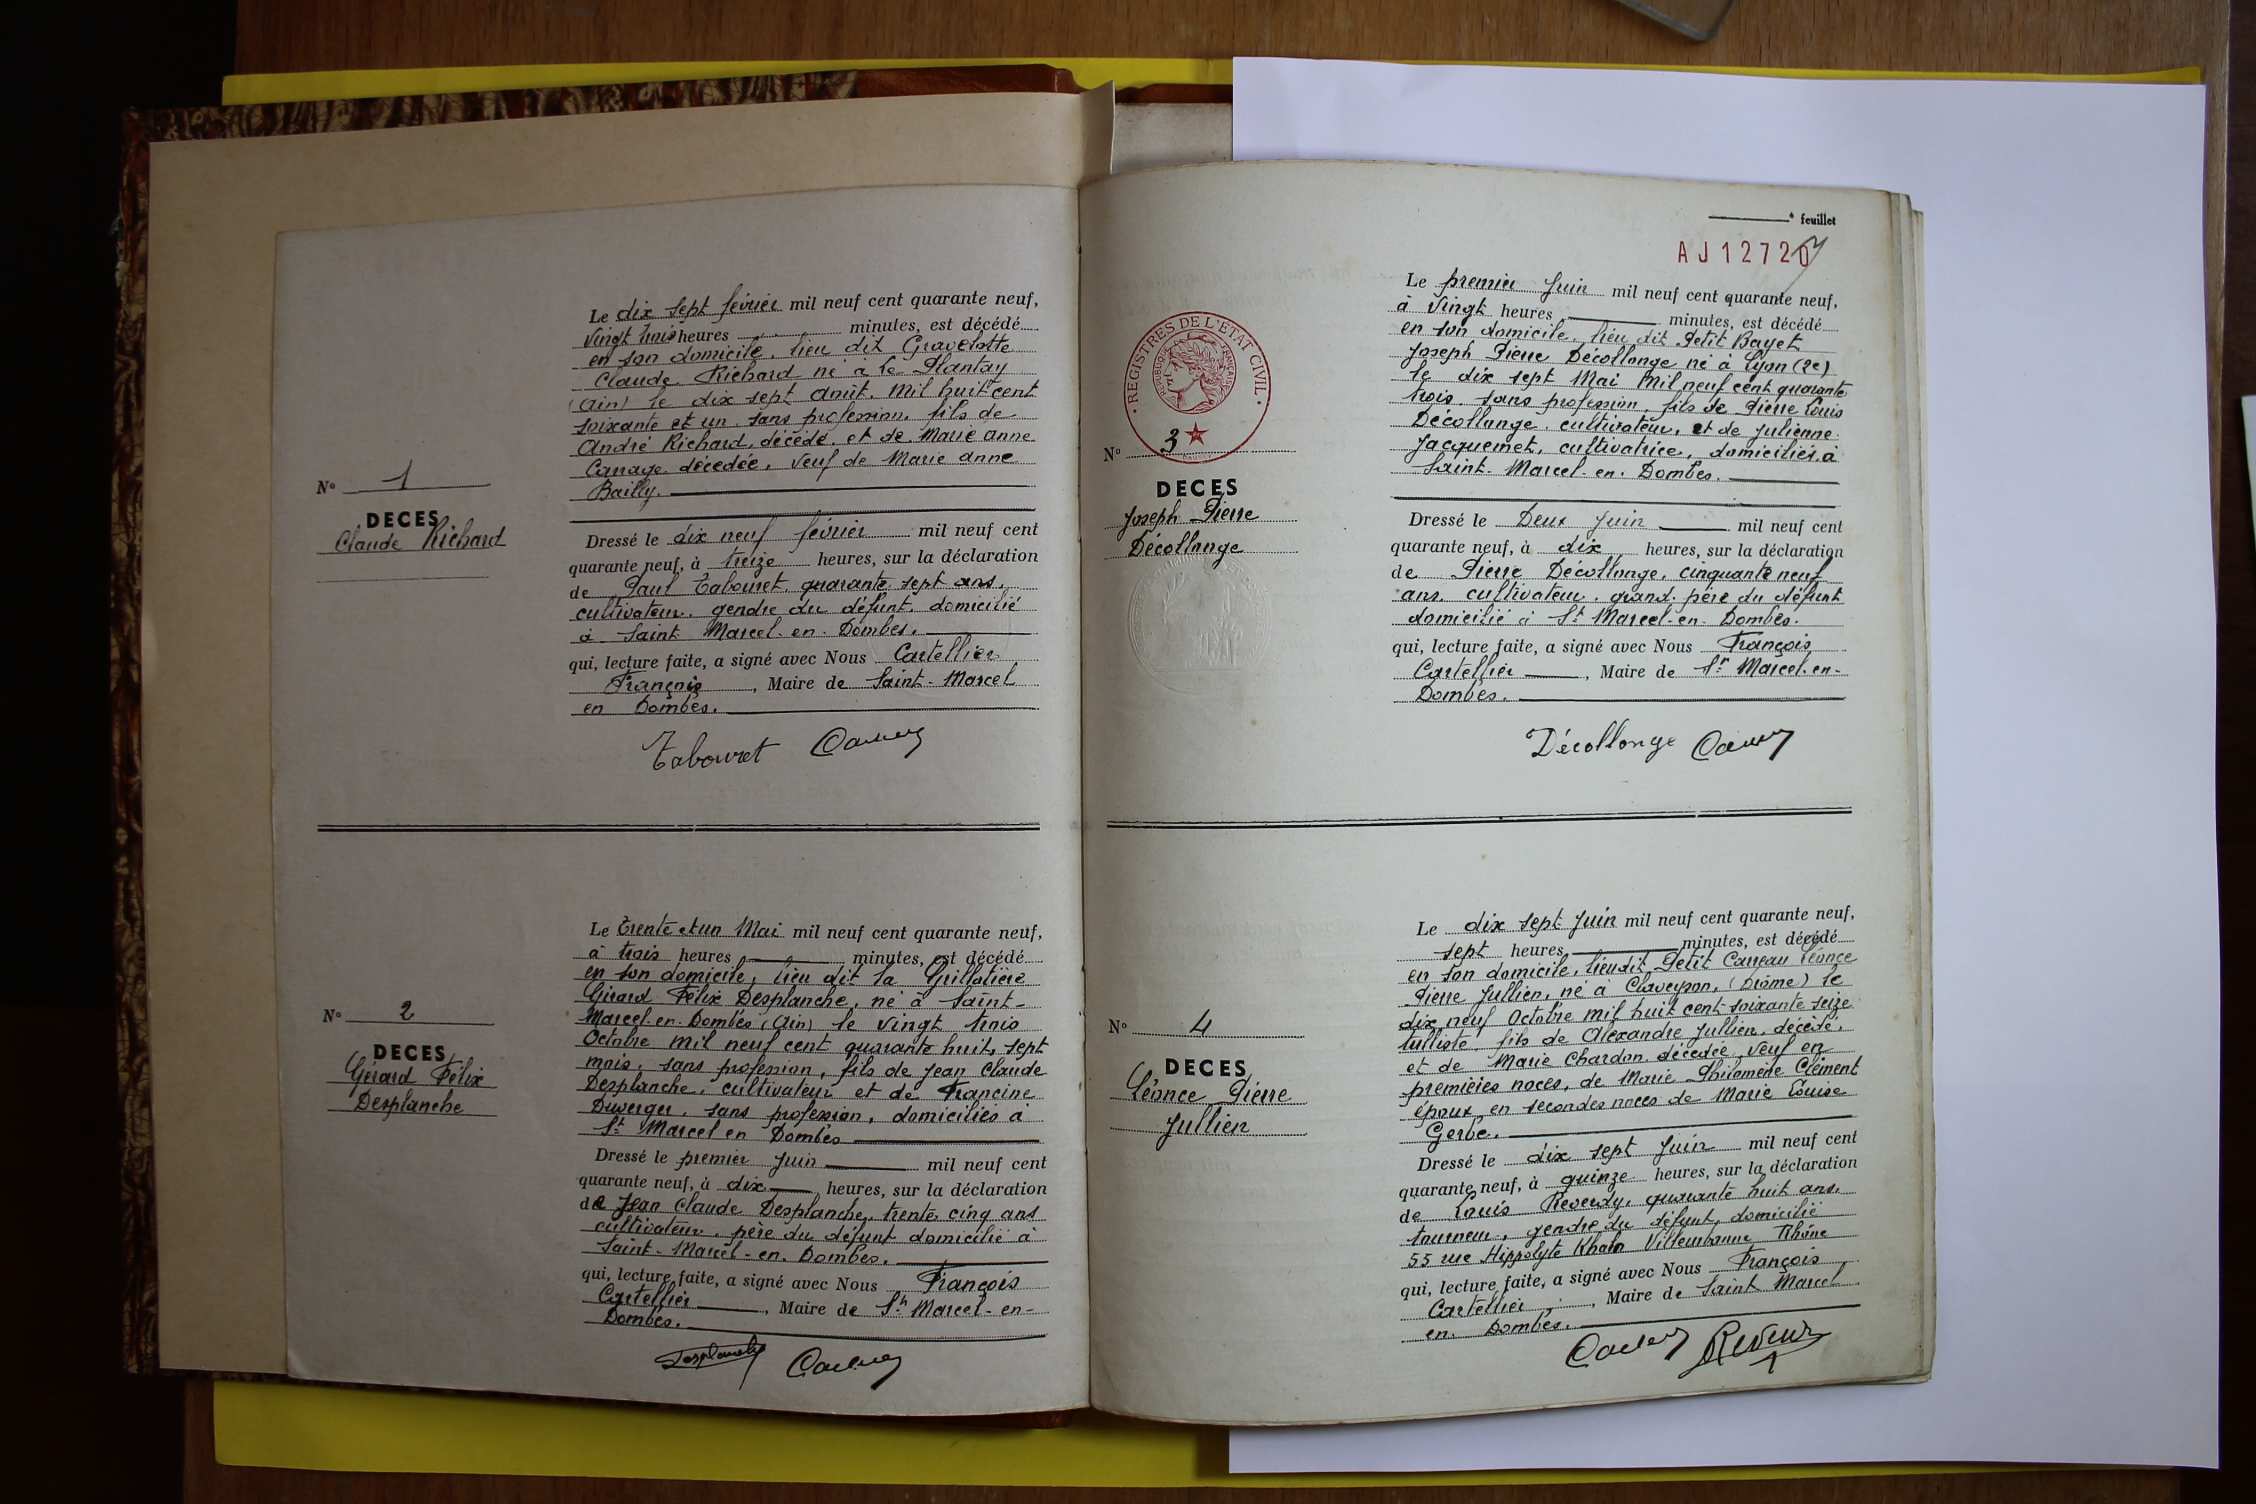 N° 1
DECES
Claude Richard
Le dix sept février mil neuf cent quarante neuf,
vingt trois heures minutes, est décédé
en son domicile, lieu dit Gravelotte
Claude Richard né à Le Plantay
(Ain) le dix sept août mil huit cent
soixante et un sans profession, fils de
André Richard, décédé, et de Marie anne
décédée, veuf de Marie anne
Bailly.
Dressé le dix neuf février mil neuf cent
quarante neuf, à treize heures, sur la déclaration
de Paul Tabouret, quarante sept ans,
cultivateur, gendre du défunt, domicilié
à Saint Marcel-en-Dombes.
qui, lecture faite, a signé avec Nous Cartellier
François, Maire de Saint-Marcel
en Dombes.
Tabouret
N° 2
DECES
Gérard Félix
Desplanche
Le Trente et un Mai mil neuf cent quarante neuf,
à trois heures minutes, est décédé
en son domicile, lieu dit la Grillatière
Gérard Félix Desplanche, né à Saint-
Marcel-en-Dombes (Ain) le vingt trois
Octobre mil neuf cent quarante huit, sept
mois, sans profession, fils de Jean Claude
Desplanche, cultivateur et de Francine
Duverger, sans profession, domiciliés à
St Marcel en Dombes
Dressé le premier Juin mil neuf cent
quarante neuf, à dix heures, sur la déclaration
de Jean Claude Desplanche, trente cinq ans
cultivateur, père du défunt domicilié à
Saint-Marcel-en-Dombes.
qui, lecture faite, a signé avec Nous François
Cartellier, Maire de St Marcel-en-
Dombes.
Desplanche
e feuillet
AJ12720
REGISTRES DE L'ÉTAT CIVIL
REPUBLIQUE FRANÇAISE
N° 3
DECES
Joseph Pierre
Décollonge
Le premier Juin mil neuf cent quarante neuf,
à vingt heures minutes, est décédé
en son domicile, lieu dit Petit Bayet
Joseph Pierre Décollonge né à Lyon (2e)
le dix sept Mai Mil neuf cent quarante
trois, sans profession, fils de Pierre Louis
Décollonge, cultivateur, et de Julienne
Jacquemet, cultivatrice, domiciliés à
Saint-Marcel-en-Dombes.
Dressé le Deux Juin mil neuf cent
quarante neuf, à dix heures, sur la déclaration
de Pierre Décollonge, cinquante neuf
ans, cultivateur, grand-père du défunt
domicilié à St Marcel-en-Dombes.
qui, lecture faite, a signé avec Nous François
Cartellier, Maire de St Marcel-en-
Dombes.
Décollonge
N° 4
DECES
Léonce Pierre
Jullien
Le dix sept Juin mil neuf cent quarante neuf,
sept heures minutes, est décédé
en son domicile, lieudit Petit Carreau Léonce
Pierre Jullien, né à Claveyson, (Drôme) le
dix neuf Octobre mil huit cent soixante seize
tulliste, fils de Alexandre Jullien, décédé,
et de Marie Chardon, décédée, veuf en
premières noces, de Marie Philomène Clément
époux en secondes noces de Marie Louise
Gerbe.
Dressé le dix sept Juin mil neuf cent
quarante neuf, à quinze heures, sur la déclaration
de Louis Reverdy, quarante huit ans,
tourneur, gendre du défunt, domicilié
55 rue Hippolyte Khaln Villeurbanne Rhône
qui, lecture faite, a signé avec Nous François
Cartellier, Maire de Saint Marcel
en Dombes.